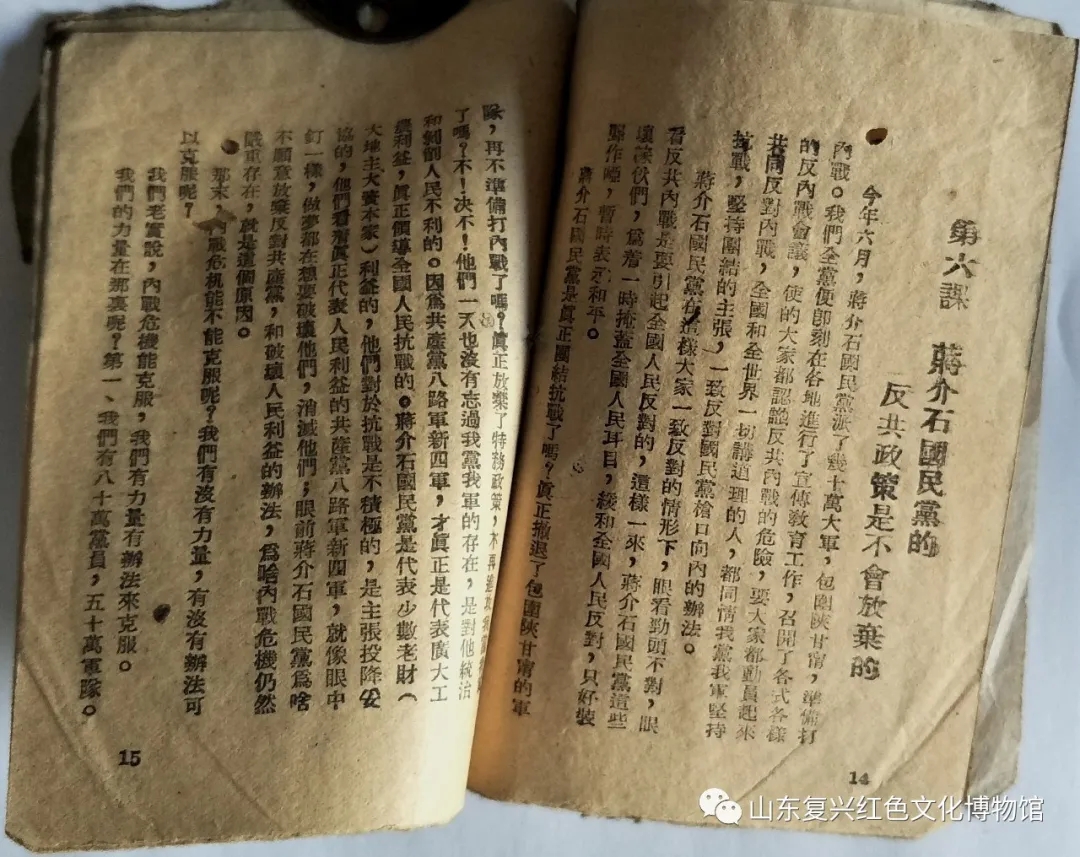 第六課 蔣介石國民黨的
反共政策是不會放棄的
今年六月,蔣介石國民黨派了幾十萬大軍,包圍陝甘甯,準備打
內戰。我們全黨便即刻在各地進行了宣傳教育工作,召開了各式各樣
的反內戰會議,使的大家都認識反共內戰的危險,要大家都動員起來
共同反對內戰,全國和全世界一切講道理的人,都同情我黨我軍堅持
抗戰,堅持團結的主張,一致反對國民黨槍口向內的辦法。
蔣介石國民黨在這樣大家一致反對的情形下,眼看勁頭不對,眼
看反共內戰是要引起全國人民反對的,這樣一來,蔣介石國民黨這些
壞傢伙們,爲着一時掩蓋全國人民耳目,緩和全國人民反對,只好裝
聾作啞,暫時表示和平。
蔣介石國民黨是眞正團結抗戰了嗎?眞正撤退了包圍陝甘甯的軍
14
隊,再不準備打內戰了嗎?眞正放棄了特務政策,不再進攻我黨
了嗎?不!决不!他們一天也沒有忘過我黨我軍的存在,是對他統治
和剝削人民不利的。因爲共產黨八路軍新四軍,才眞正是代表廣大工
農利益,眞正領導全國人民抗戰的。蔣介石國民黨是代表少數老財(
大地主大資本家)利益的,他們對於抗戰是不積極的,是主張投降妥
協的,他們看着眞正代表人民利益的共產黨八路軍新四軍,就像眼中
釘一樣,做夢都在想要破壞他們,消滅他們;眼前蔣介石國民黨爲啥
不願意放棄反對共產黨,和破壞人民利益的辦法,爲啥內戰危機仍然
嚴重存在,就是這個原因。
那末,內戰危机能不能克服呢?我們有沒有力量,有沒有辦法可
以克服呢?
我們老實說,內戰危機能克服,我們有力量有辦法來克服。
我們的力量在那裏呢?第一、我們有八十萬黨員,五十萬軍隊。
15
山东复兴红色文化博物馆